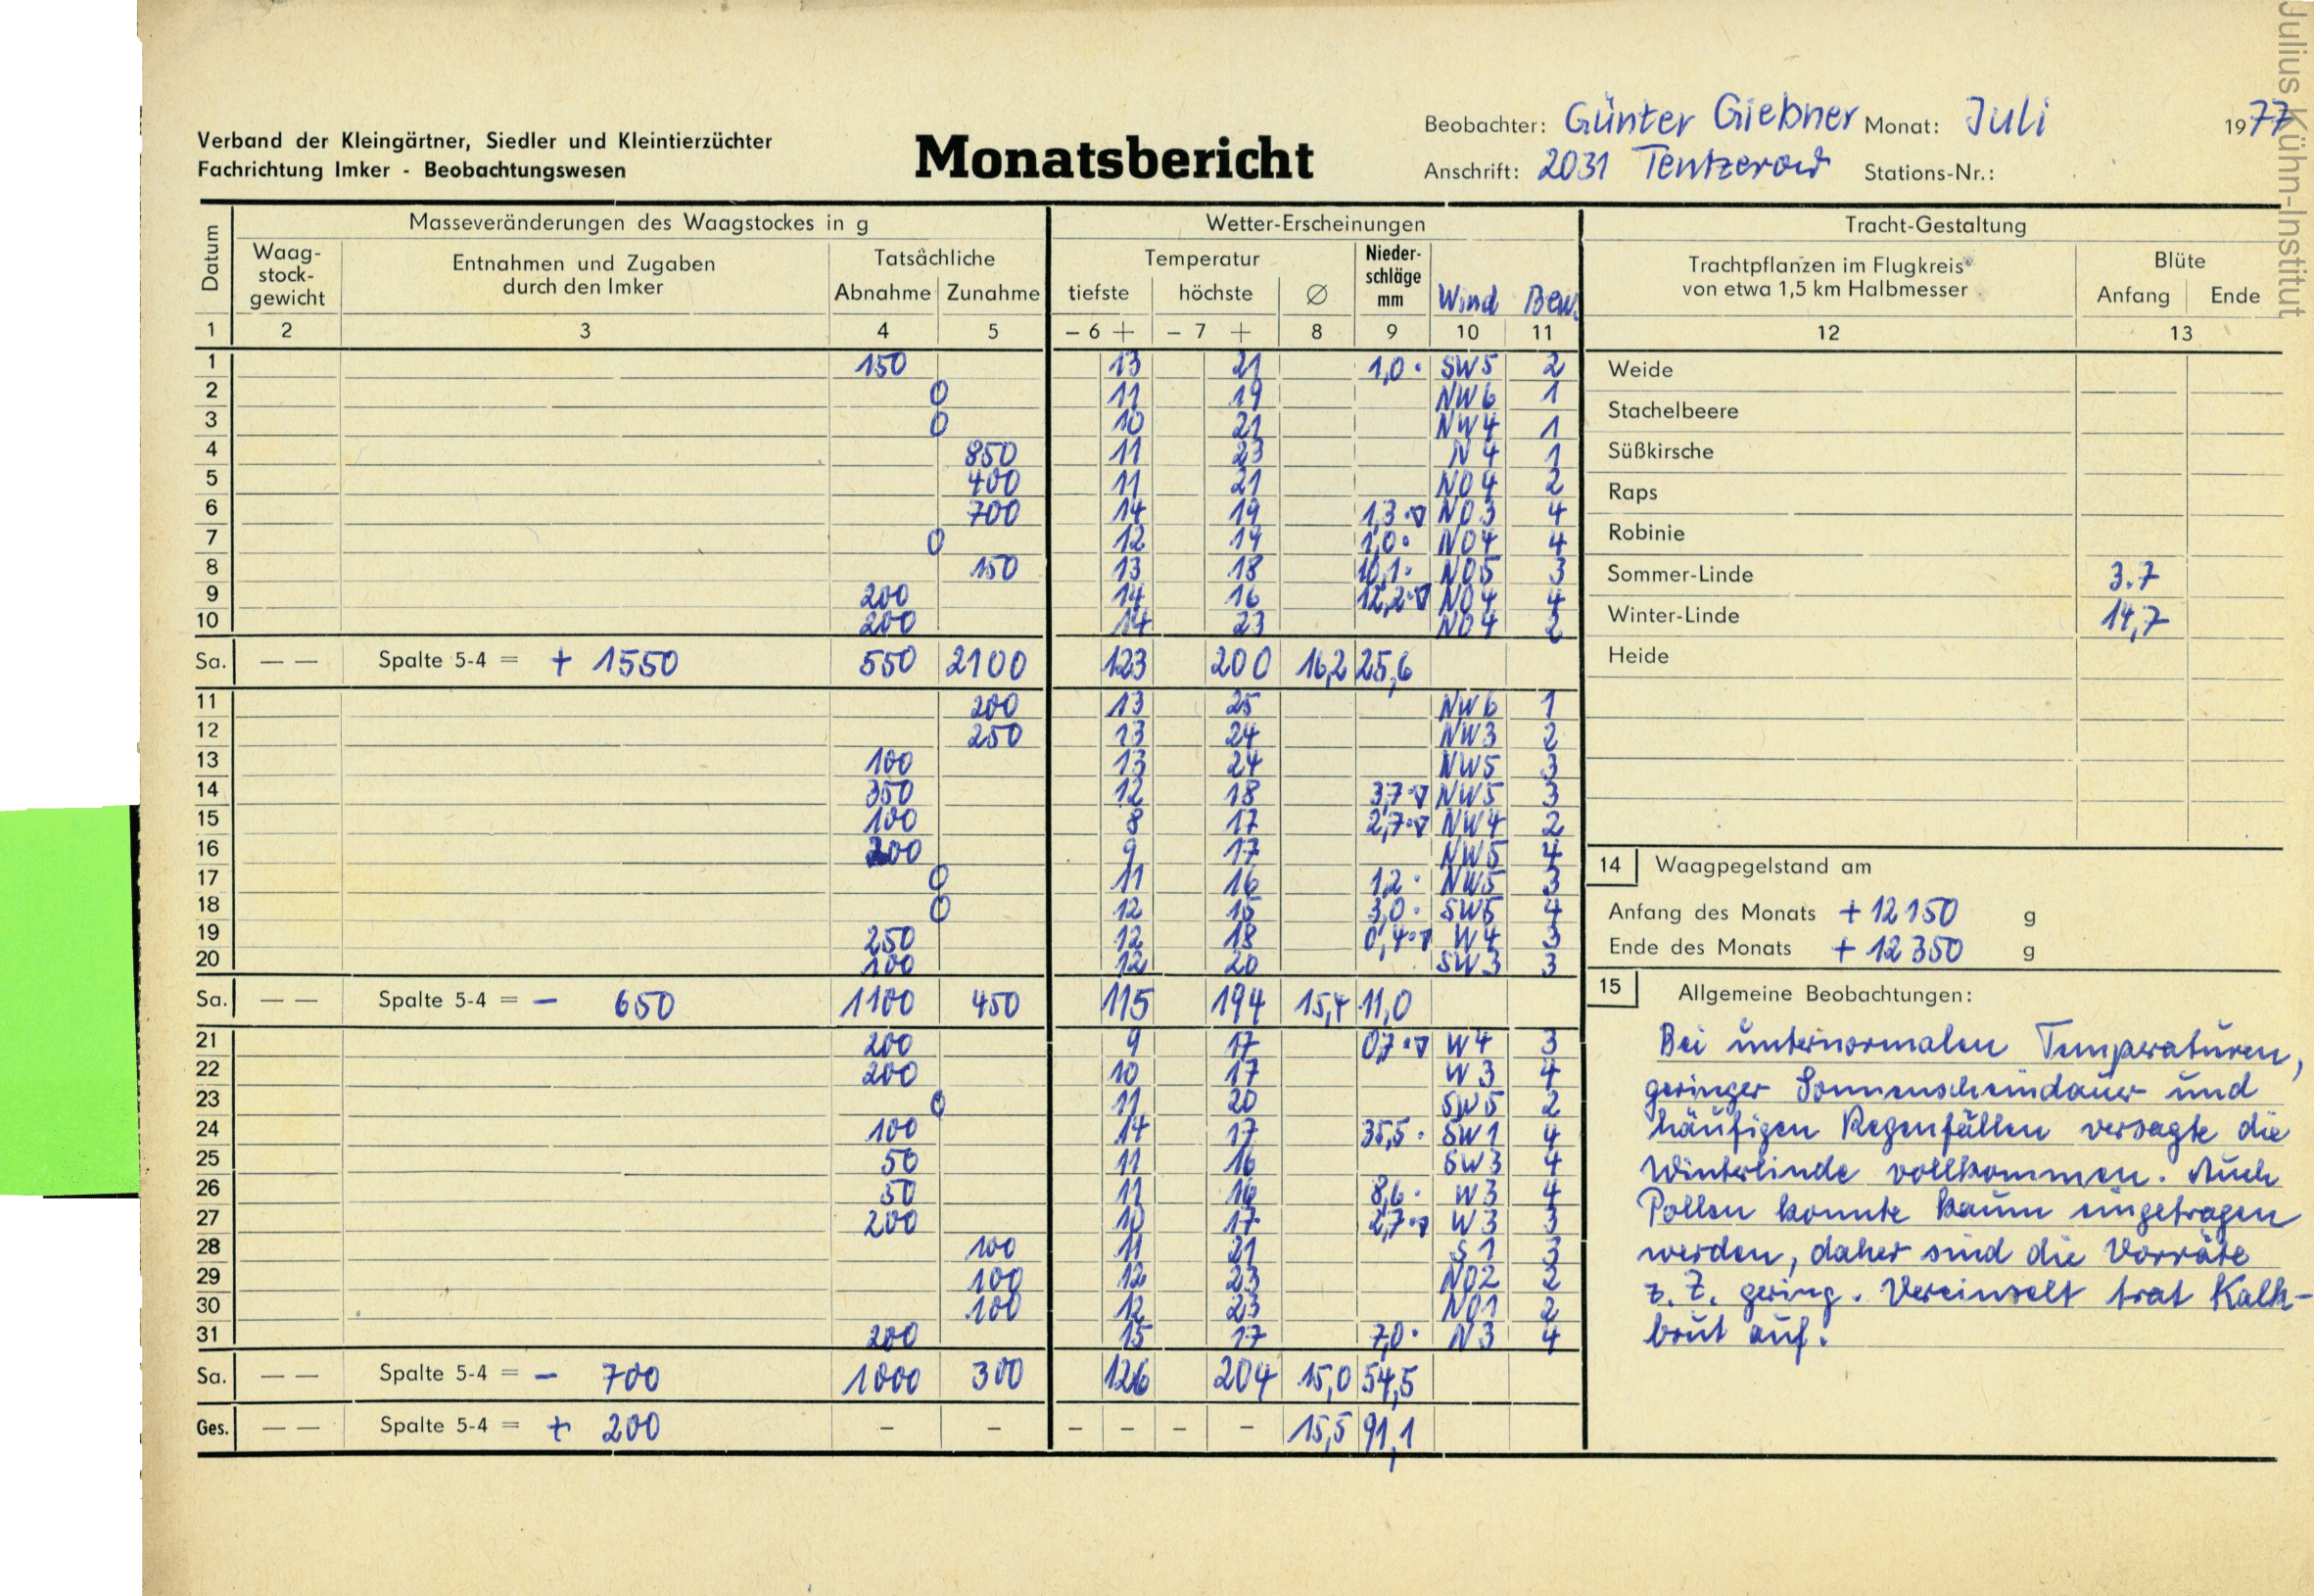 Julius Kühn-Institut
Verband der Kleingärtner, Siedler und Kleintierzüchter
Fachrichtung Imker - Beobachtungswesen
Monatsbericht
Beobachter: Günter Giebner Monat: Juli 1977
Anschrift: 2031 Tentzerow Stations-Nr.:
Datum
Masseveränderungen des Waagstockes in g
Waag-
stock-
gewicht
Entnahmen und Zugaben
durch den Imker
Tatsächliche
Abnahme Zunahme
Wetter-Erscheinungen
Temperatur
tiefste höchste Ø
Nieder-
schläge
mm
Wind Bew.
1 2 3 4 5 – 6 + – 7 + 8 9 10 11
1 150 13 21 1,0 • SW5 2
2 0 11 19 NW6 1
3 0 10 21 NW4 1
4 850 11 23 N4 1
5 400 11 21 NO4 2
6 700 14 19 1,3 •▽ NO3 4
7 0 12 19 1,0 • NO4 4
8 150 13 18 10,1 • NO5 3
9 200 14 16 12,2 •▽ NO4 4
10 200 14 23 NO4 2
Sa. — — Spalte 5-4 = + 1550 550 2100 123 200 16,2 25,6
11 200 13 25 NW6 1
12 250 13 24 NW3 2
13 100 13 24 NW5 3
14 350 12 18 3,7 •▽ NW5 3
15 100 8 17 2,7 •▽ NW4 2
16 200 9 17 NW5 4
17 0 11 16 1,2 • NW5 3
18 0 12 15 3,0 • SW5 4
19 250 12 18 0,4 •▽ W4 3
20 100 12 20 SW3 3
Sa. — — Spalte 5-4 = – 650 1100 450 115 194 15,4 11,0
21 200 9 17 0,7 •▽ W4 3
22 200 10 17 W3 4
23 0 11 20 SW5 2
24 100 14 17 35,5 • SW1 4
25 50 11 16 SW3 4
26 50 11 16 8,6 • W3 4
27 200 10 17 2,7 •▽ W3 3
28 100 11 21 S1 3
29 100 12 23 NO2 2
30 100 12 23 NO1 2
31 200 15 17 7,0 • N3 4
Sa. — — Spalte 5-4 = – 700 1000 300 126 204 15,0 54,5
Ges. — — Spalte 5-4 = + 200 – – – – – – 15,5 91,1
Tracht-Gestaltung
Trachtpflanzen im Flugkreis
von etwa 1,5 km Halbmesser
Blüte
Anfang Ende
12 13
Weide
Stachelbeere
Süßkirsche
Raps
Robinie
Sommer-Linde 3.7
Winter-Linde 14,7
Heide
14 Waagpegelstand am
Anfang des Monats + 12150 g
Ende des Monats + 12350 g
15 Allgemeine Beobachtungen:
Bei unternormalen Temperaturen,
geringer Sonnenscheindauer und
häufigen Regenfällen versagte die
Winterlinde vollkommen. Auch
Pollen konnte kaum eingetragen
werden, daher sind die Vorräte
z. Z. gering. Vereinzelt trat Kalk-
brut auf.